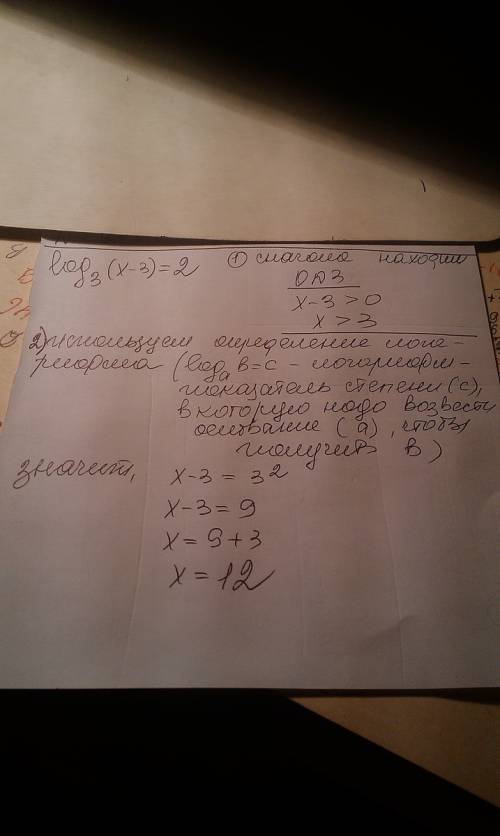 log₃(x-3)=2 ① сначала находим
ОДЗ
x-3>0
x>3
2) используем определение лога-
рифма (logₐ b=c - логарифм -
показатель степени (c),
в которую надо возвести
основание (a), чтобы
получить b)
значит,
x-3 = 3²
x-3=9
x=9+3
x=12